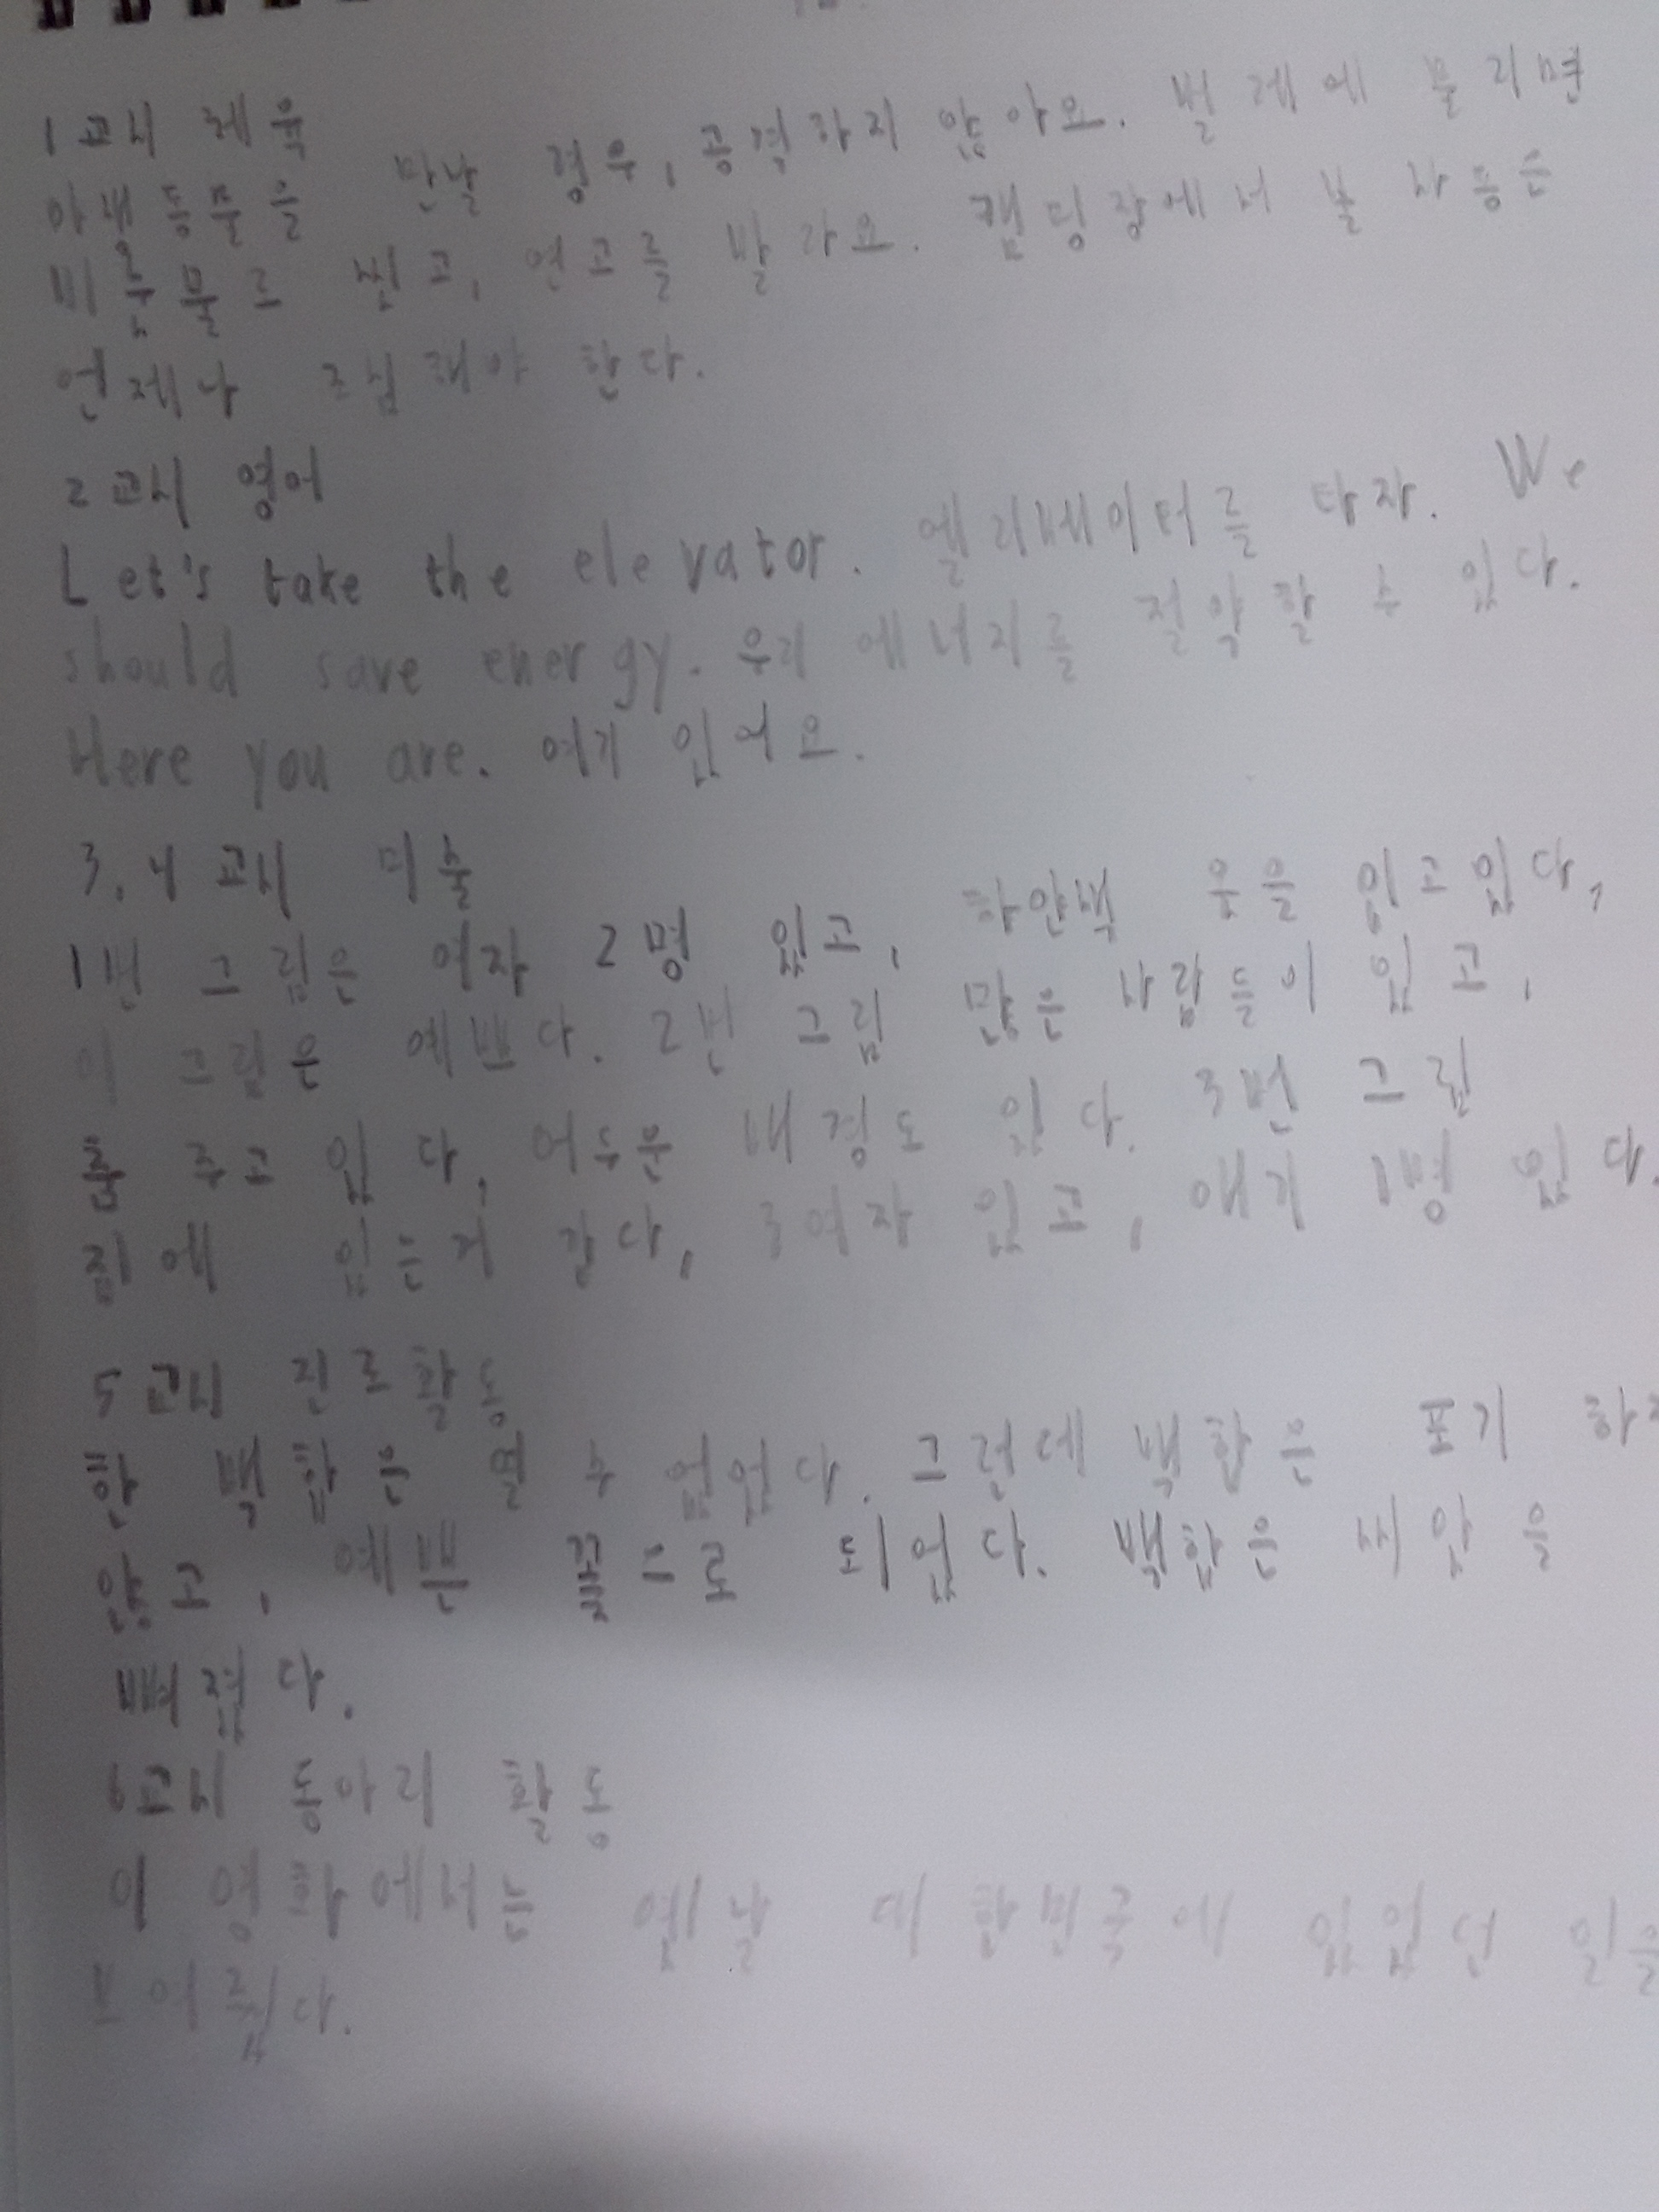 1교시 체육
야생동물을 만날 경우, 공격하지 않아요. 벌레에 물리면
비눗물로 씻고, 연고를 발라요. 캠핑장에서 불 사용은
언제나 조심해야 한다.
2교시 영어
Let's take the elevator. 엘리베이터를 타자. We
should save energy. 우리 에너지를 절약할 수 있다.
Here you are. 여기 있어요.
3, 4교시 미술
1번 그림은 여자 2명 있고, 하얀색 옷을 입고있다,
이 그림은 예쁘다. 2번 그림 많은 사람들이 있고,
춤 추고 있다, 어두운 배경도 있다. 3번 그림
집에 있는거 같다, 3여자 있고, 애기 1명 있다.
5교시 진로활동
한 백합은 필 수 없었다. 그런데 백합은 포기 하지
않고, 예쁜 꽃으로 되었다. 백합은 씨앗을
뻐졌다.
6교시 동아리 활동
이 영화에서는 옛날 대한민국에 있었던 일을
보여줬다.